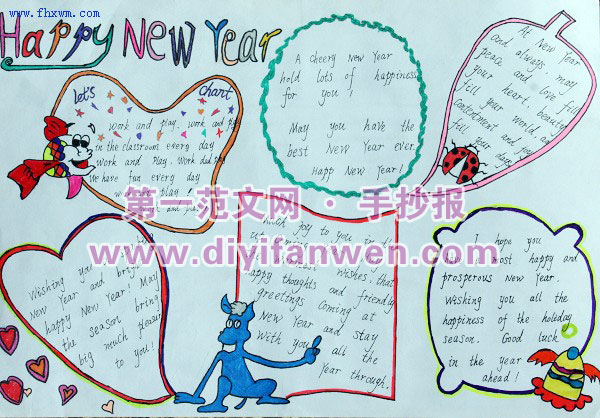 www.fhxwm.com
Happy New Year
Let's Chant
work and play, work and play
in the classroom every day
work and Play. Work and play
We have fun every day
play !
A cheery New Year
hold lots of happiness
for you !
May you have the
best New Year ever.
Happ New Year !
At New Year
and always, may
peace and love fill
your heart, beauty
fill your world, and
contentment and joy
fill your days.
第一范文网 · 手抄报
www.diyifanwen.com
Wishing you
New Year and
happy New Year! May
the season bring
much pleasure
to you !
much joy to you in the
wishes, that
appy thoughts and friendly
greetings coming at
New Year and stay
with you all the
Year through.
I hope you
most happy and
prosperous New Year.
Wishing you all the
happiness of the holiday
season. Good luck
in the year
ahead !